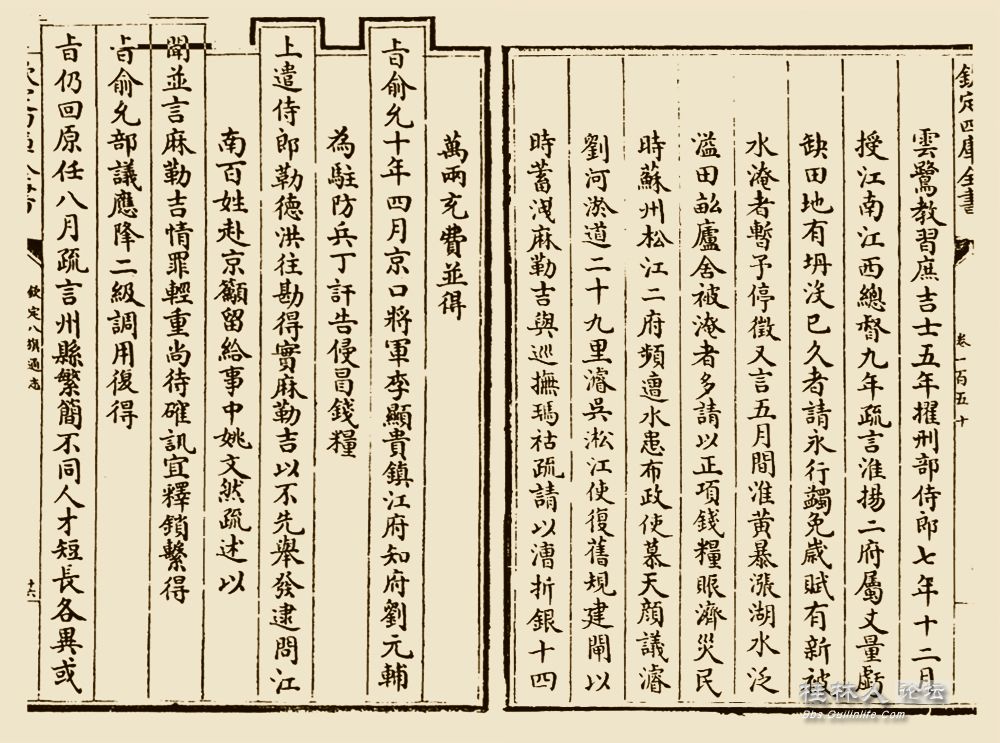 欽定四庫全書
卷一百五十
雲鷺教習庶吉士五年擢刑部侍郎七年十二月
授江南江西總督九年疏言淮揚二府屬丈量虧
缺田地有坍沒已久者請永行蠲免歲賦有新被
水淹者暫予停徵又言五月間淮黃暴漲湖水泛
溢田畝廬舍被淹者多請以正項錢糧賑濟災民
時蘇州松江二府頻遭水患布政使慕天顏議濬
劉河淤道二十九里濬吳淞江使復舊規建閘以
時蓄洩麻勒吉與巡撫瑪祜疏請以漕折銀十四
萬兩充費並得
㫖俞允十年四月京口將軍李顯貴鎮江府知府劉元輔
為駐防兵丁訐告侵冒錢糧
上遣侍郎勒德洪往勘得實麻勒吉以不先舉發逮問江
南百姓赴京籲留給事中姚文然疏述以
聞並言麻勒吉情罪輕重尚待確訊宜釋鎖繫得
㫖俞允部議應降二級調用復得
㫖仍回原任八月疏言州縣繁簡不同人才短長各異或
欽定八旗通志
十六
桂林人论坛
Bbs.Guilinlife.Com